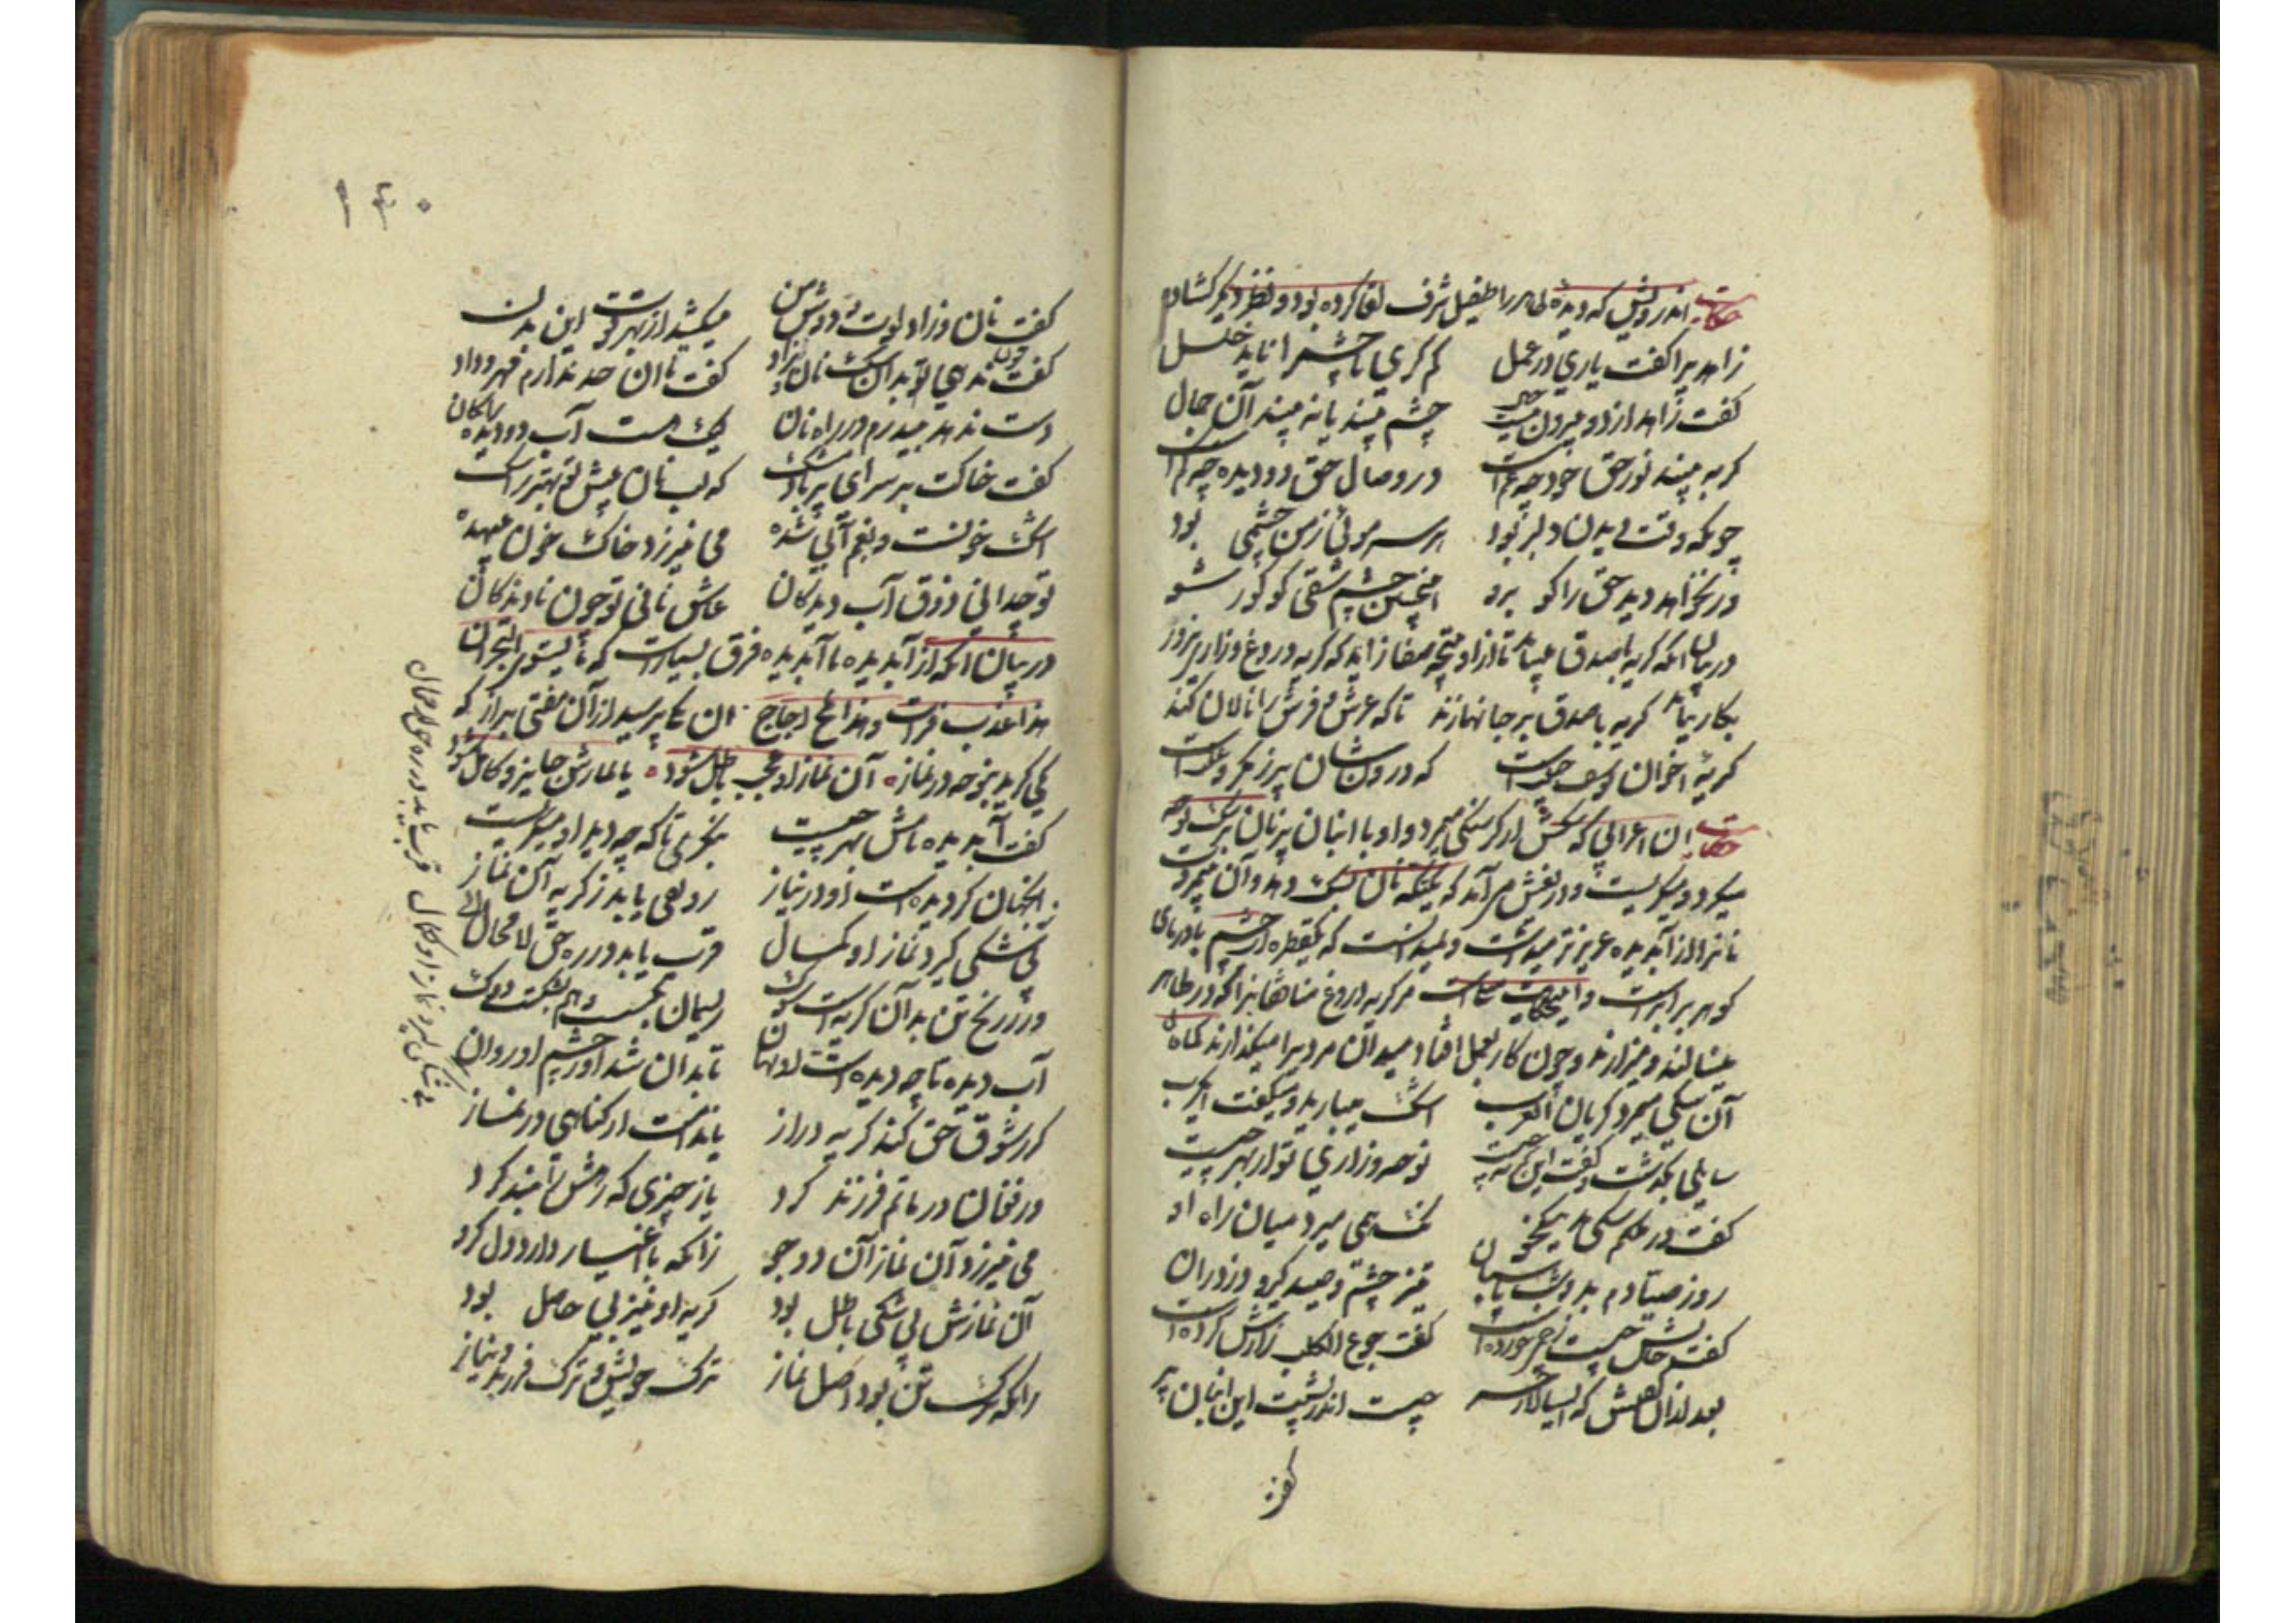 حکایت اندرویش که دیده ظاهر را طفیل شرف لقا کرده بود و نظر دیگر کشاده
زاهدیرا کفت یاری در عمل کم کری تا چشم را ناید خلل
کفت زاهد از دو بیرون نیست حال چشم بیند یا نه بیند آن جمال
کر به بیند نور حق خود چه غمست در وصال حق دو دیده چه کمست
چونکه وقت دیدن دلبر بود هر سر موئی ز من چشمی بود
ور نخواهد دید حق را کو برو اینچنین چشم شقی کو کور شو
در بیان آنکه کریه با صدق میباید تا از او نتیجه صفا زاید که کریه دروغ و زاری بزور
بکار نیاید کریه با صدق بر جانها زند تا که عرش و فرش را نالان کند
کریه اخوان یوسف حیلتست که درونشان پر ز مکر و علتست
حکایت آن اعرابی که سکش از کرسنکی میمرد و او با انبان پر نان بر سک نوحه
میکرد و میکریست و در نفس بر نمی آمد که یکتکه نان بسک دهد و آن میمرد
نانرا از آبدیده عزیزتر میداشت و نمیدانست که یکقطره از چشم با دریای
کوهر برابرست و این حکایت مر کریه دروغ منافقانرا که در ظاهر
مینالند و میزارند و چون کار بعمل افتاد میدان مردیرا میکذارند
آن سکی میمرد کریان آن عرب اشک میبارید و میکفت ای کرب
سایلی بکذشت و کفت این کریه چیست نوحه و زاری تو از بهر چیست
کفت در ملکم سکی بد نیکخو نک همی میرد میان راه او
روز صیادم بد و شب پاسبان تیز چشم و صید کیر و دزدران
کفت حالش چیست زخمی خورده است کفت جوع الکلب زارش کرده است
بعد از آن کفتش که ای سالار حر چیست اندر پشت این انبان پر
کفت
۱۴۰
کفت نان و زاد و لوت دوش من میکشد از بهر قوت این بدن
کفت چون ندهی تو بدان سک نان و زاد کفت تا این حد ندارم مهر و داد
دست ندهد بیدرم در راه نان لیک هست آب دو دیده رایکان
کفت خاکت بر سر ای پر باد مشک که لب نان پیش تو بهتر ز اشک
اشک خونست و بغم آبی شده می نیرزد خاک خون بیهده
تو چه دانی ذوق آب دیدکان عاشق نانی تو چون نادیدکان
در بیان آنکه از آبدیده تا آبدیده فرق بسیارست که ما یستوی البحران
هذا عذب فرات و هذا ملح اجاج آن یکی پرسید از آن مفتی براز که
کی کرید بنوحه در نماز آن نماز او عجب باطل شود یا نمازش جایز و کامل شود
کفت آب دیده نامش بهر چیست بنکری تا که چه دید او میکریست
آنچنان کر دیده است او در نیاز رونقی یابد ز کریه آن نماز
بی شکی کیرد نماز او کمال قرب یابد در ره حق لامحال
ور ز رنج تن بد آن کریه است سوک ریسمان بکسست و هم بشکست دوک
آب دیده تا چه دیده است او نهان تا بدان شد او ز چشم او روان
کر ز شوق حق کند کریه دراز یا ندامت از کناهی در نماز
ور فغان در ماتم فرزند کرد یا ز چیزی که
می نیرزد آن نماز آن دو جو زانکه با اغیار دارد دل کرو
آن نمازش بی شکی باطل بود کریه او نیز بی حاصل بود
زانکه ترک تن بود اصل نماز ترک خویش و ترک فرزند و نیاز
بی شکی کیرد نماز او کمال قرب یابد در ره حق لامحال